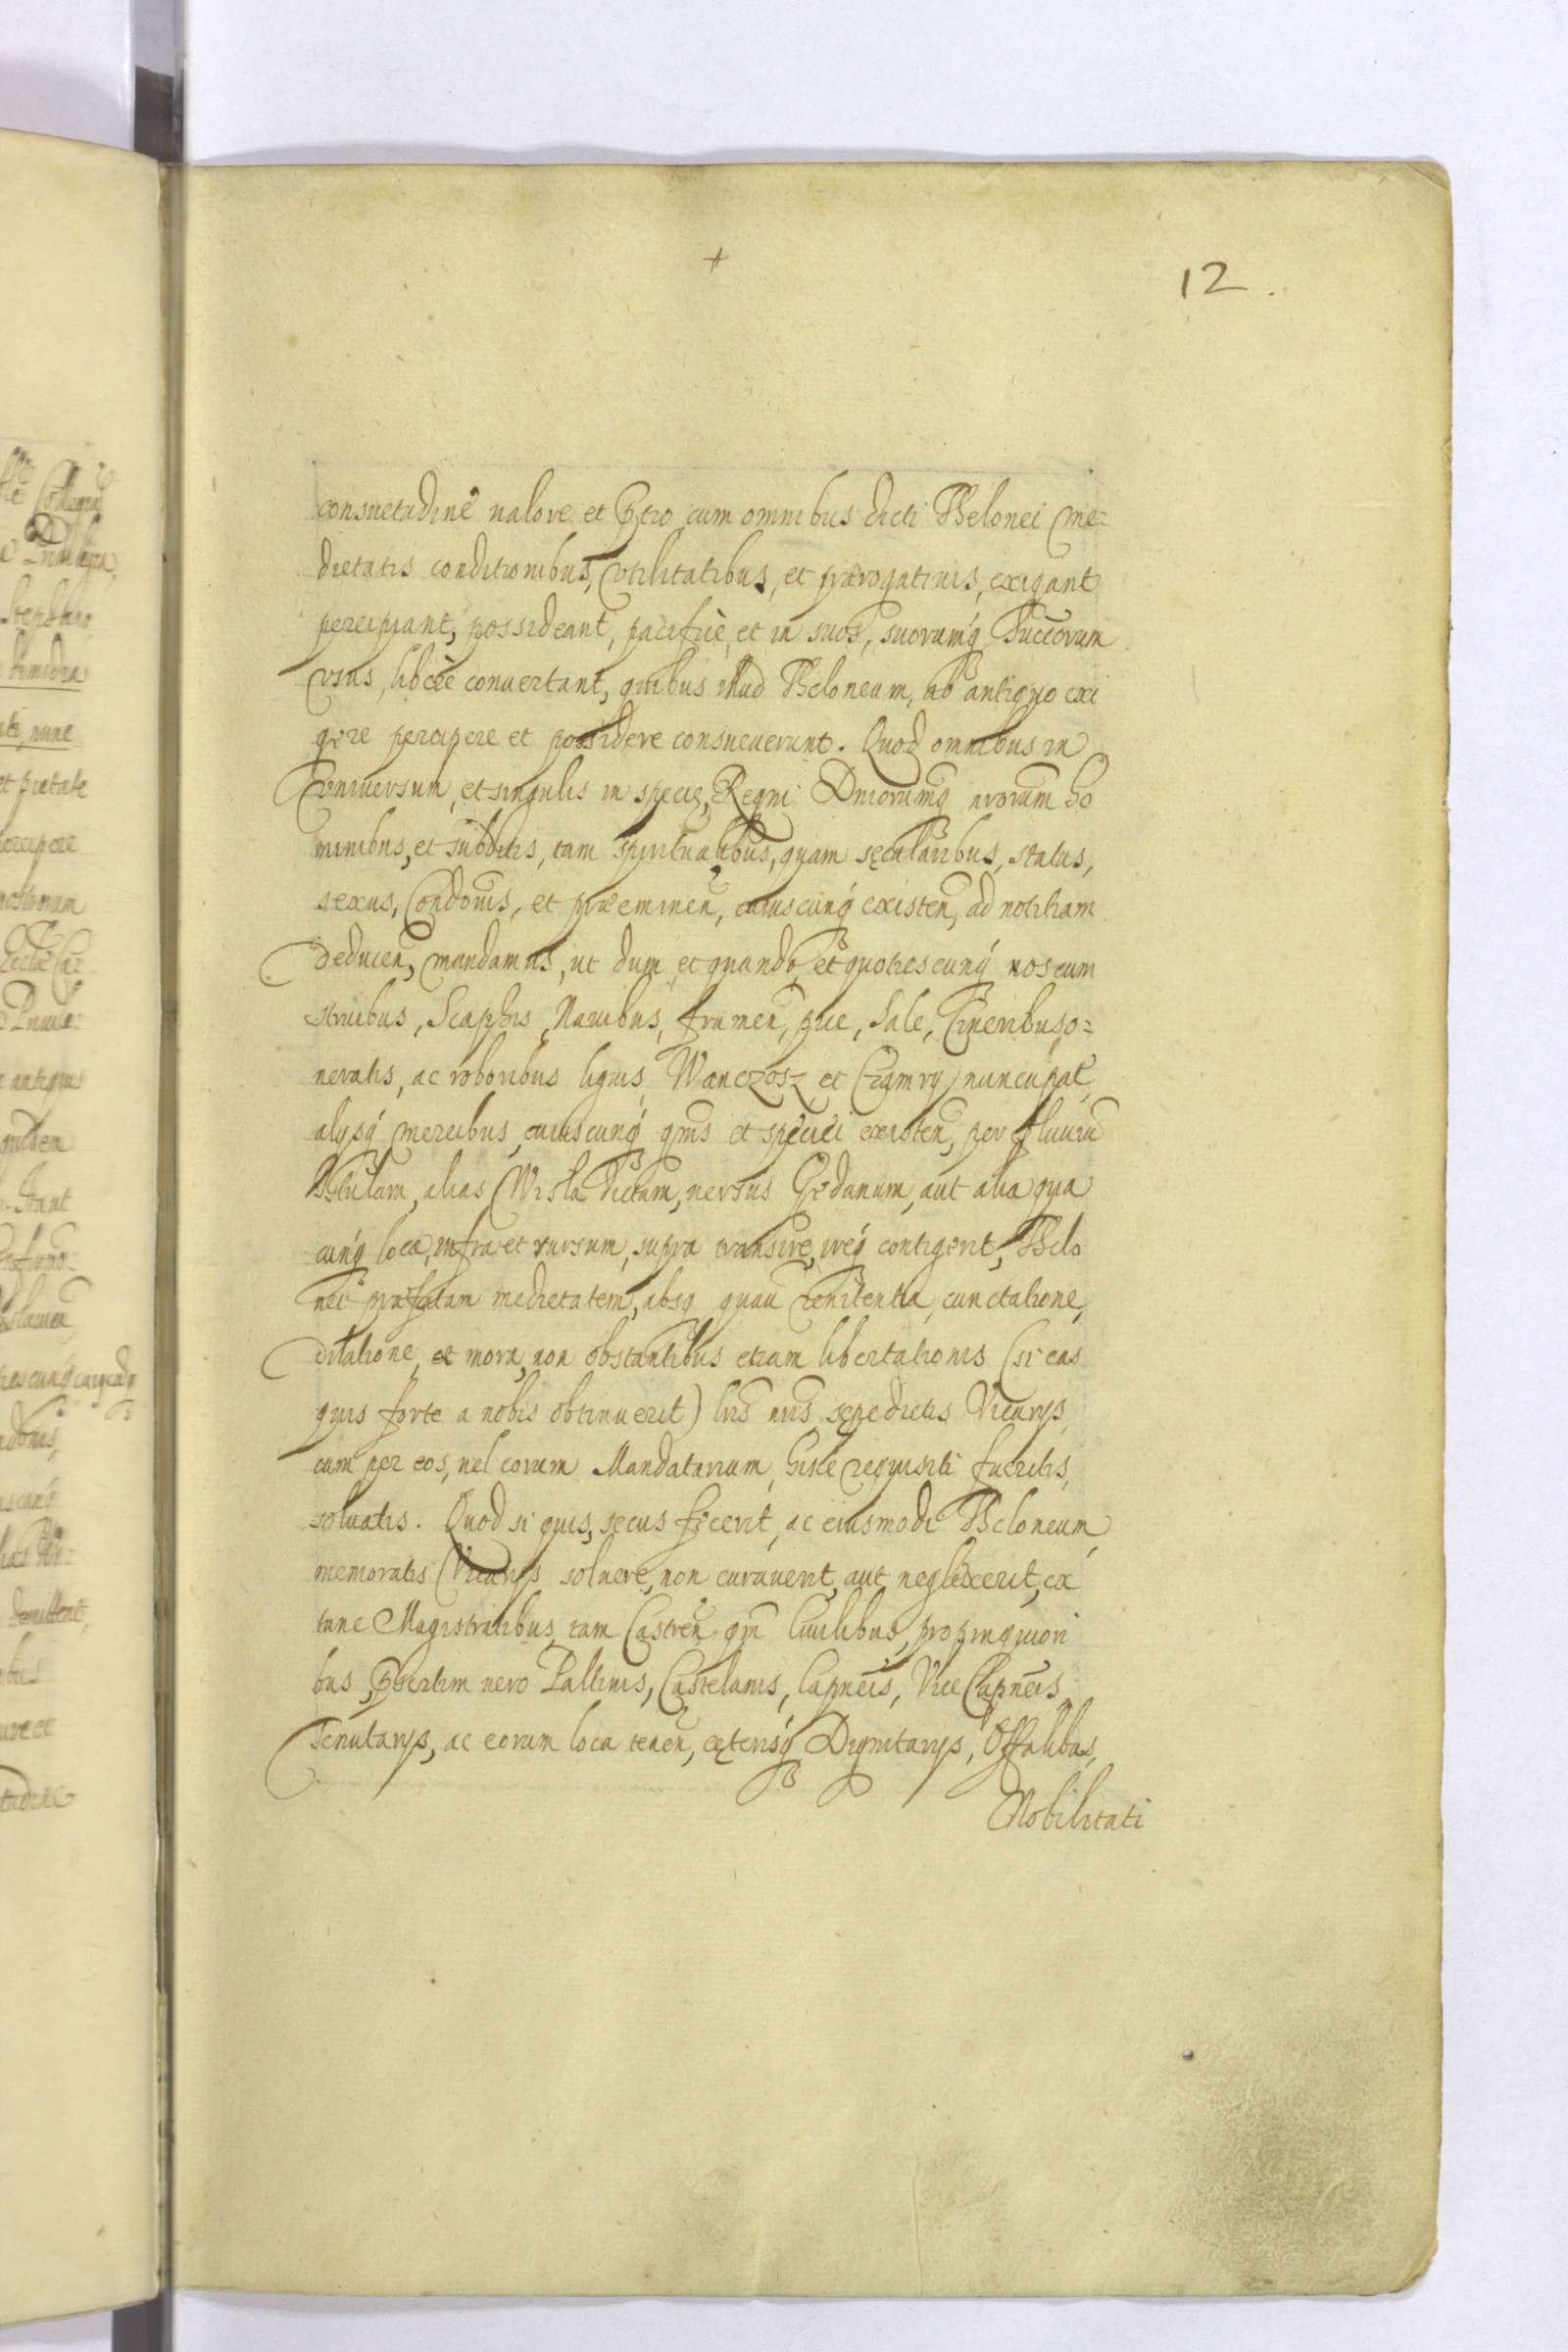 +
12.
consuetudinē valore et p̄tio cum omnibus dicti Thelonei me=
dietatis conditionibus, vtilitatibus, et prærogatiuis, exigant
percipiant, possideant, pacificè, et in suos, suorumq́ Succorum
vsus, liberè conuertant, quibus illud Theloneum, ab antiquo exi
gere percipere et possidere consueuerunt. Quod omnibus in
vniuersum, et singulis in specie, Regni Dniorumq́ nrorum ho
minibus, et subditis, tam spiritualibus, quam sęcularibus, status,
sexus, Condonis, et præeminen, cuiuscunq́ existen, ad notitiam
deducen, mandamus, ut dum, et quando, et quotiescunq́ vos cum
struibus, Scaphis, Nauibus, frumen, pice, Sale, Cineribus o=
neratis, ac roboribus lignis, Wanczosz et Czamry nuncupat,
alysq́ mercibus, cuiuscunq́ gnis et speciei existen, per fluuiū
Vistulam, alias Wisla dictam, versus Gedanum, aut alia qua
cunq́ loca, infra et rursum, supra transire, ireq́ contigerit, Thelo
nei præfatam medietatem, absq quau renitentia, cunctatione,
dilatione, et mora, non obstantibus etiam libertationis (si eas
quis forte a nobis obtinuerit) lris nris sępedictis Vicarys,
cum per eos, uel eorum Mandatarium, hisce requisiti fueritis,
soluatis. Quod si quis, secus fecerit, ac eiusmodi Theloneum,
memoratis Vicarys soluere, non curauerit, aut neglexerit, ex
tunc Magistratibus, tam Castren qm Ciuilibus, propinquiori
bus, p̄sertim uero Pallinis, Castelanis, Capneis, Vice Capneis
Tenutarys, ac eorum loca tenen, cęterisq́ Dignitarys, Offalibus,
Nobilitati